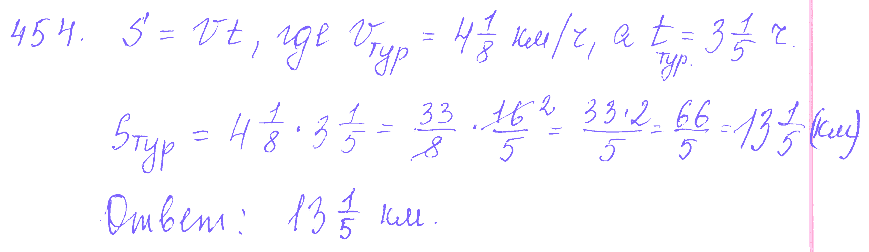 454. S = Vt, где Vтур = 4 1/8 км/ч, а tтур. = 3 1/5 ч.
Sтур = 4 1/8 · 3 1/5 = 33/8 · 16/5 2 = 33·2/5 = 66/5 = 13 1/5 (км)
Ответ: 13 1/5 км.